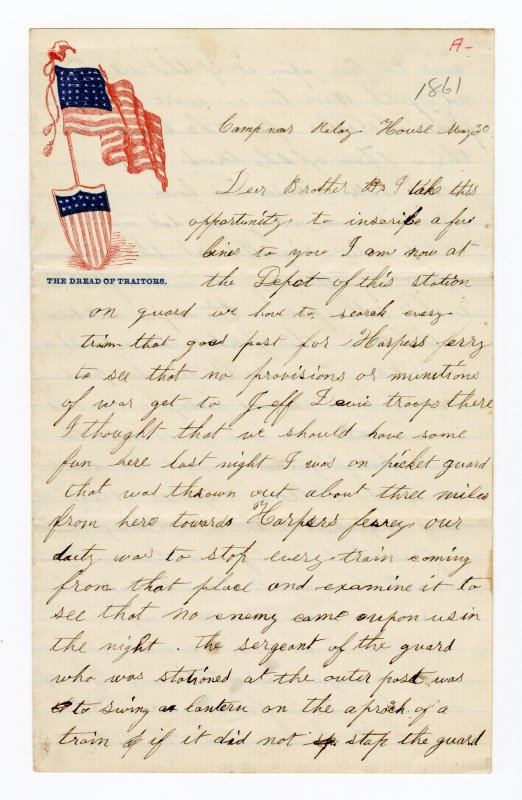 A-
1861
Camp near Relay House May 30
Dear Brother I take this
opportunity to inscribe a few
lines to you I am now at
THE DREAD OF TRAITORS.
the Depot of this station
on guard we have to search every
train that goes past for Harpers ferry
to see that no provisions or munitions
of war get to Jeff Davis troops there
I thought that we should have some
fun here last night I was on picket guard
that was thrown out about three miles
from here towards Harpers ferrey our
duty was to stop every train coming
from that place and examine it to
see that no enemy came oupon us in
the night . the sergeant of the guard
who was stationed at the outer post was
to swing a lantern on the aproch of a
train if it did not stop the guard